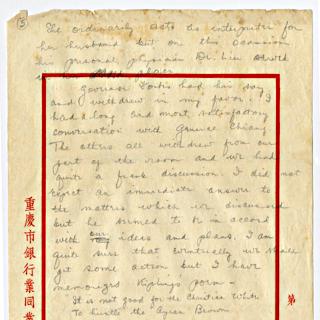 (3)
She ordinarily acts as interpreter for
her husband but on this occasion
his personal physician Dr. Lieu served
in her place.
Governor Fortis had his say
and withdrew in my favor. I
had a long and most satisfactory
conversation with General Chiang
The others all withdrew from our
part of the room and we had
quite a frank discussion. I did not
expect an immediate answer to
the matters which we discussed
but he seemed to be in accord
with our ideas and plans. I am
quite sure that eventually we shall
get some action but I have
memories Kipling's poem -
It is not good for the Christian White
To hustle the Aryan Brown
重慶市銀行業同業
第